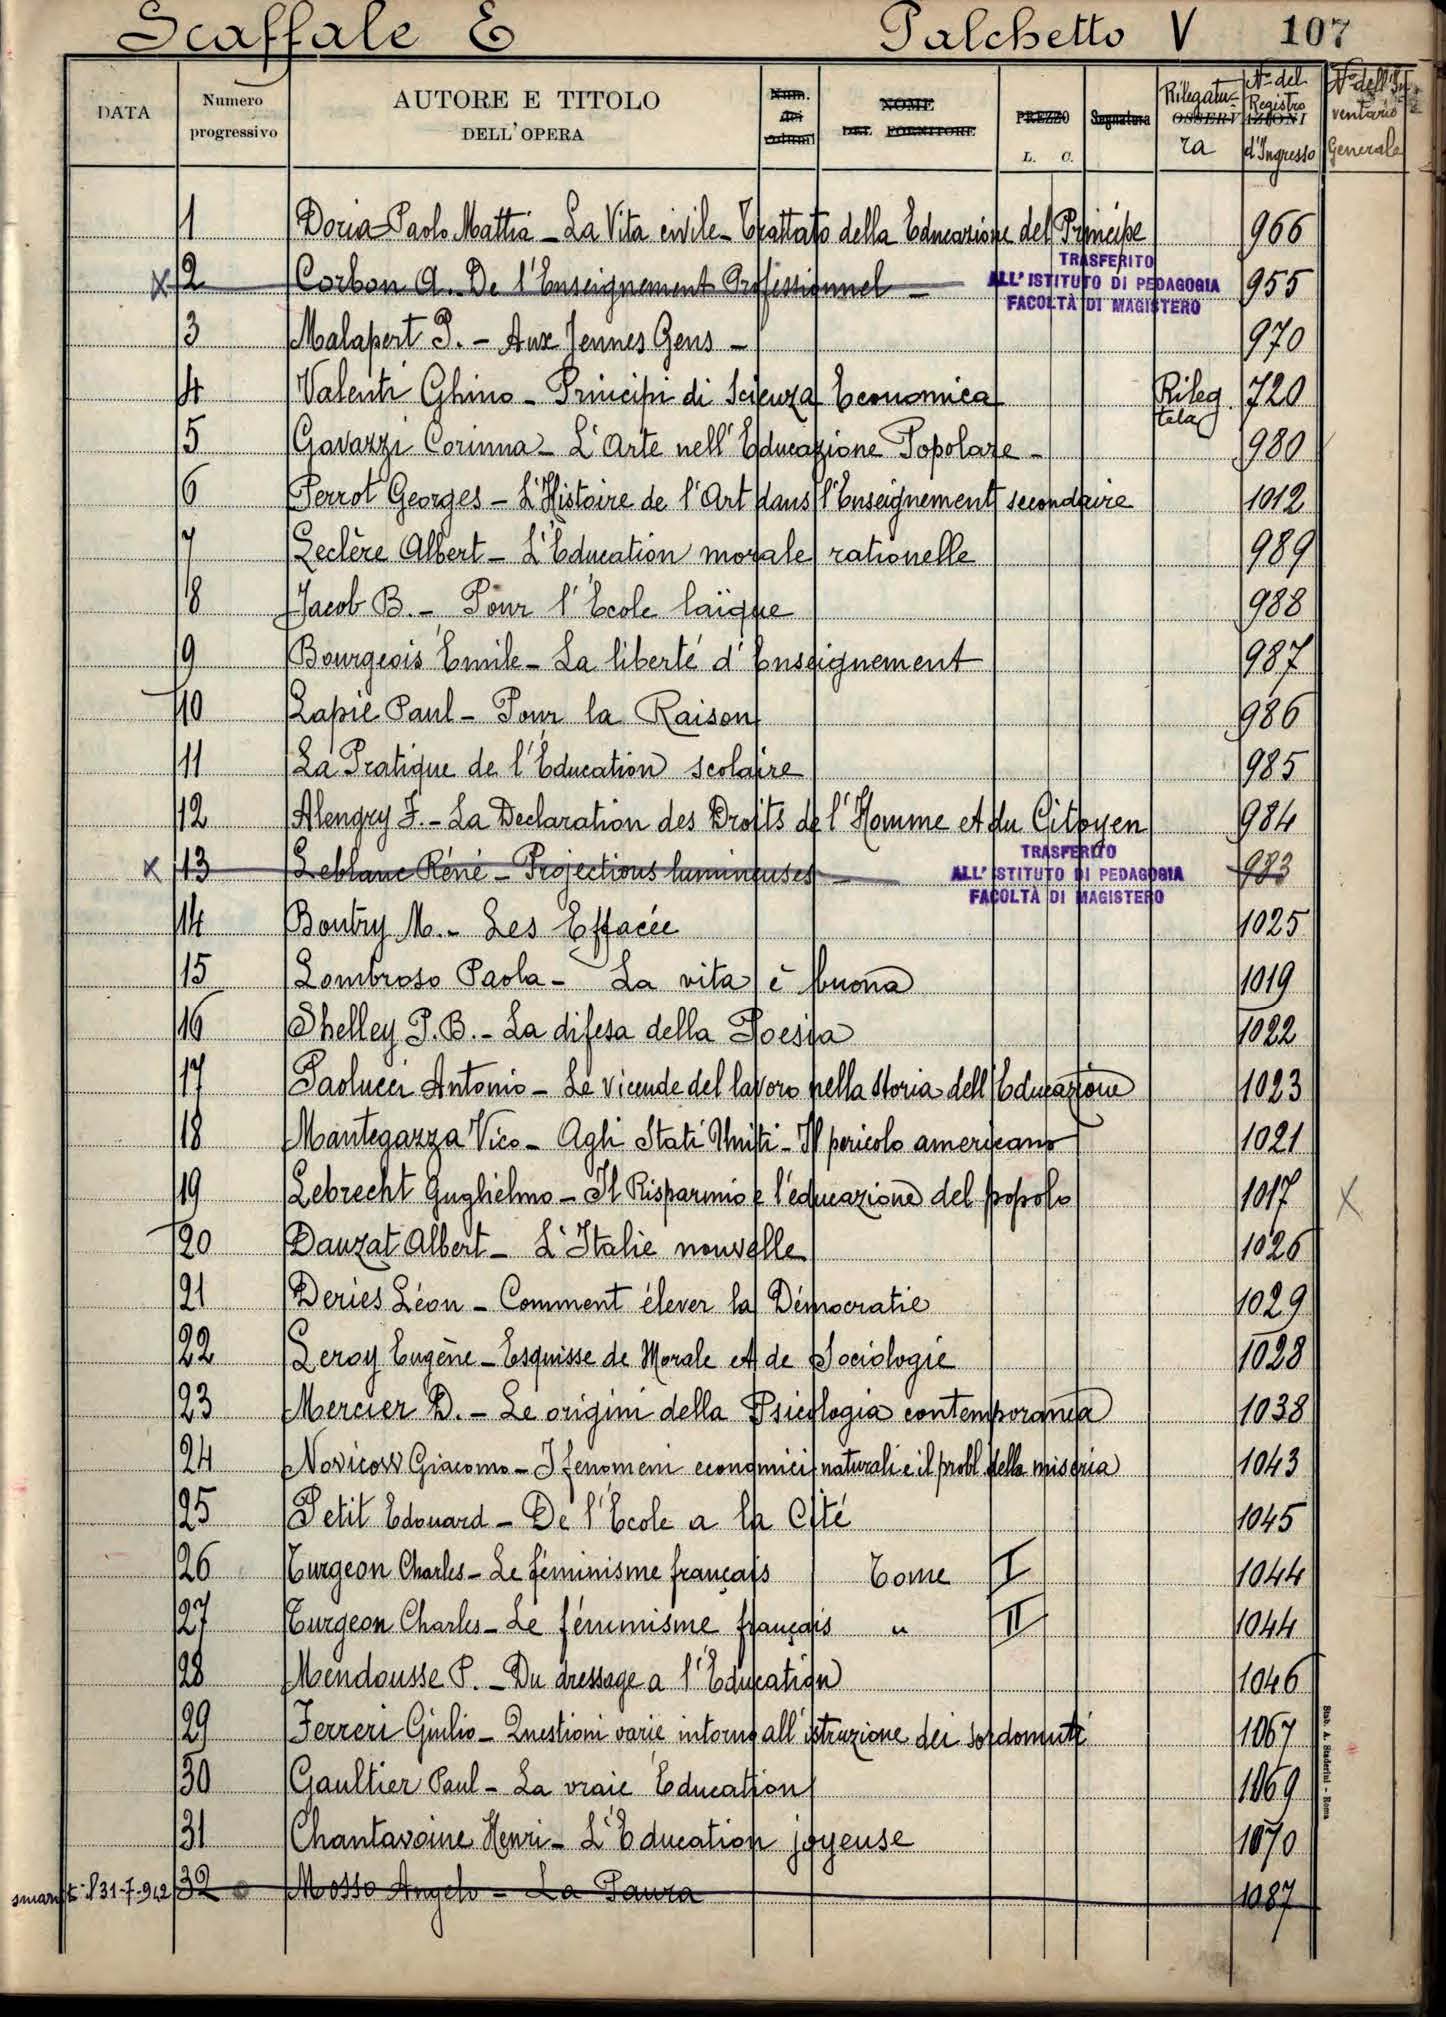 Scaffale E Palchetto V 107
DATA Numero progressivo AUTORE E TITOLO DELL'OPERA Num. dei volumi NOME DEL FORNITORE PREZZO L. C. Segnatura OSSERVAZIONI Rilegatura N° del Registro d'Ingresso N° dell'Inventario Generale
1 Doria Paolo Mattia - La Vita civile - Trattato della Educazione del Principe 966
x 2 Corbon A. - De l'Enseignement Professionnel - 955
TRASFERITO
ALL'ISTITUTO DI PEDAGOGIA
FACOLTÀ DI MAGISTERO
3 Malapert P. - Aux Jennes Gens - 970
4 Valenti Ghino - Principi di Scienza Economica Rileg. tela 720
5 Gavazzi Corinna - L'Arte nell'Educazione Popolare - 980
6 Perrot Georges - L'Histoire de l'Art dans l'Enseignement secondaire 1012
7 Leclère Albert - L'Education morale rationelle 989
8 Jacob B. - Pour l'Ecole laïque 988
9 Bourgeois Emile - La liberté d'Enseignement 987
10 Lapie Paul - Pour la Raison 986
11 La Pratique de l'Education scolaire 985
12 Alengry F. - La Declaration des Droits de l'Homme et du Citoyen 984
x 13 Leblanc Réné - Projections lumineuses - 983
TRASFERITO
ALL'ISTITUTO DI PEDAGOGIA
FACOLTÀ DI MAGISTERO
14 Boutry M. - Les Effacée 1025
15 Lombroso Paola - La vita è buona 1019
16 Shelley P. B. - La difesa della Poesia 1022
17 Paolucci Antonio - Le vicende del lavoro nella storia dell'Educazione 1023
18 Mantegazza Vico - Agli Stati Uniti - Il pericolo americano 1021
19 Lebrecht Guglielmo - Il Risparmio e l'educazione del popolo 1017 X
20 Dauzat Albert - L'Italie nouvelle 1026
21 Deries Léon - Comment élever la Démocratie 1029
22 Leroy Eugène - Esquisse de Morale et de Sociologie 1028
23 Mercier D. - Le origini della Psicologia contemporanea 1038
24 Novicow Giacomo - I fenomeni economici naturali e il probl. della miseria 1043
25 Petit Edouard - De l'Ecole a la Cité 1045
26 Turgeon Charles - Le féminisme français Tome I 1044
27 Turgeon Charles - Le féminisme français " II 1044
28 Mendousse P. - Du dressage a l'Education 1046
29 Ferreri Giulio - Questioni varie intorno all'istruzione dei sordomuti 1067
30 Gaultier Paul - La vraie Education 1069
31 Chantavoine Henri - L'Education joyeuse 1070
31-7-942 32 Mosso Angelo - La Paura 1087
Stab. A. Staderini - Roma